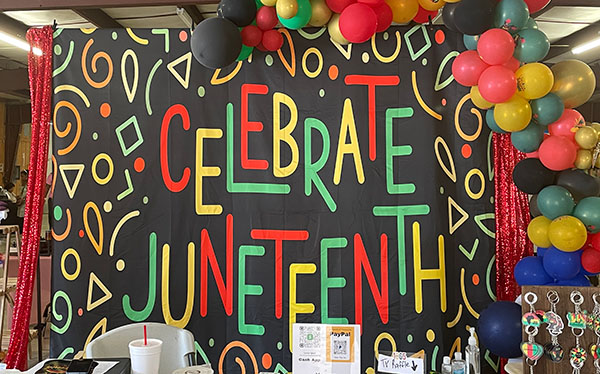 CELEBRATE
JUNETEENTH
PayPal
Cash App
TV Raffle